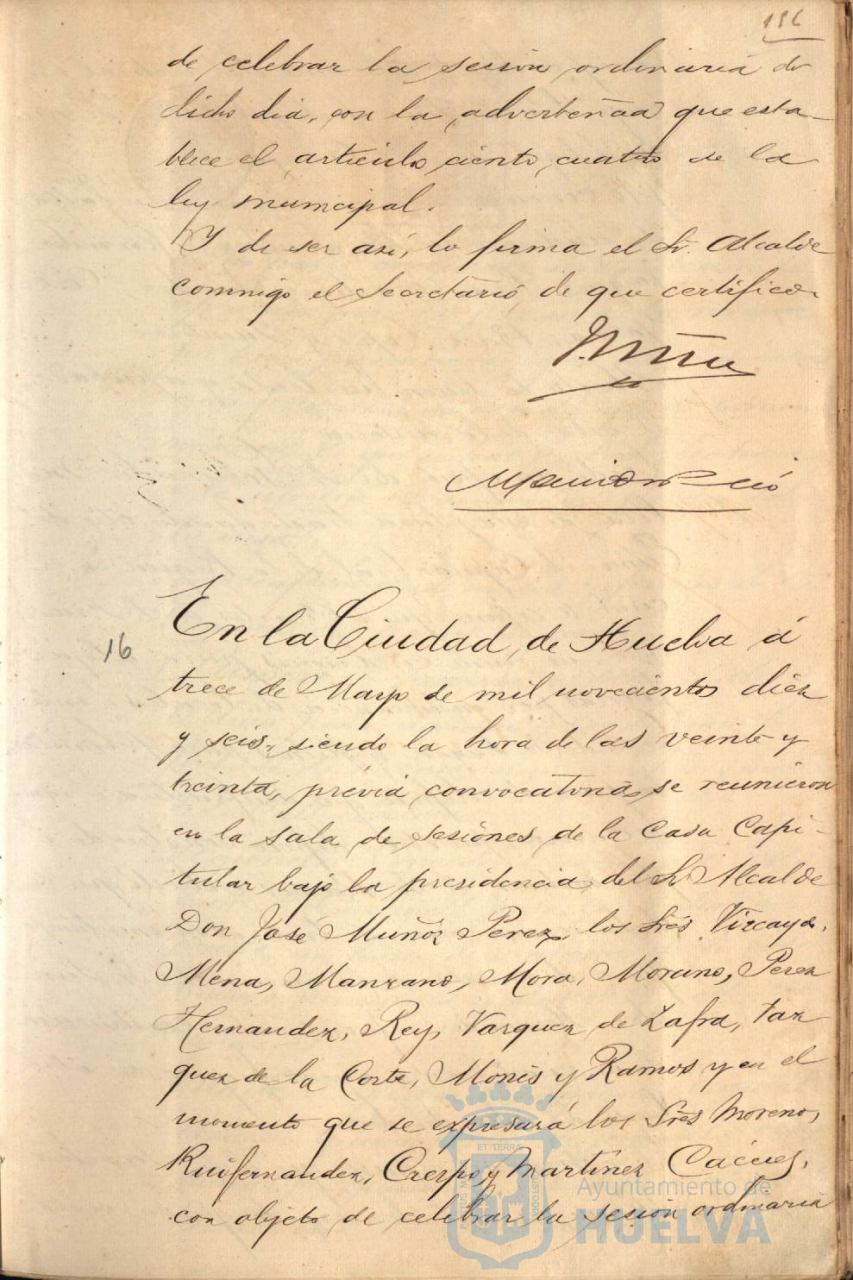 116
de celebrar la sesión ordinaria de
dicho dia, con la advertencia que esta-
blece el artículo ciento cuatro de la
ley municipal.
Y de ser así, lo firma el Sr. Alcalde
conmigo el Secretario, de que certifico.
16
En la Ciudad de Huelva á
trece de Mayo de mil novecientos diez
y seis, siendo la hora de las veinte y
treinta, prévia convocatoria, se reunieron
en la sala de sesiones de la Casa Capi-
tular bajo la presidencia del Sr. Alcalde
Don José Muñóz Perez, los Srés Vizcaya,
Mena, Manzano, Mora, Morano, Perez
Hernandez, Rey, Vazquez de Zafra, Vaz
quez de la Corte, Monís y Ramos y en el
momento que se expresará los Srés Moreno,
Ruifernandez, Crespo y Martínez Cácces,
con objeto de celebrar la sesión ordinaria
Ayuntamiento de
HUELVA